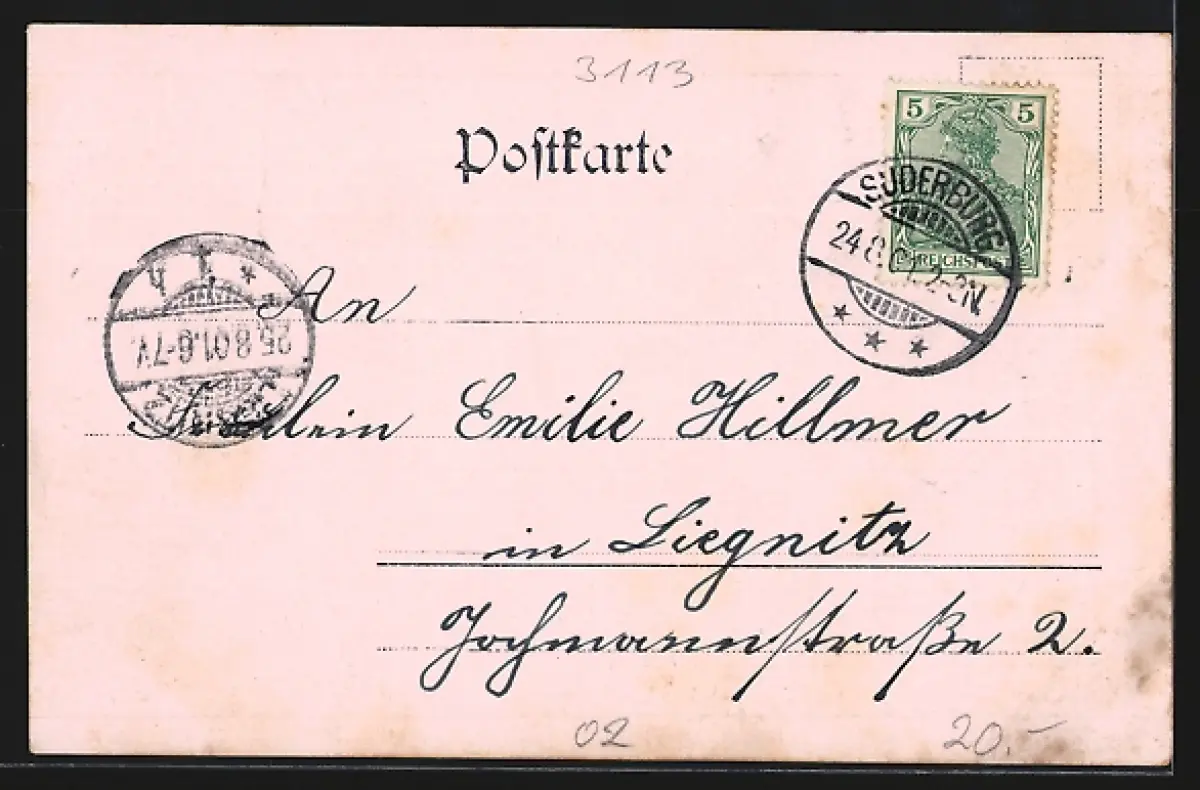 3113
Postkarte
5 5
REICHSPOST
SUDERBURG
24.8.01.2-3N.
25.8.01.6-7V.
An
Fräulein Emilie Hillmer
in Liegnitz
Jochmannstraße 2.
02
20.-